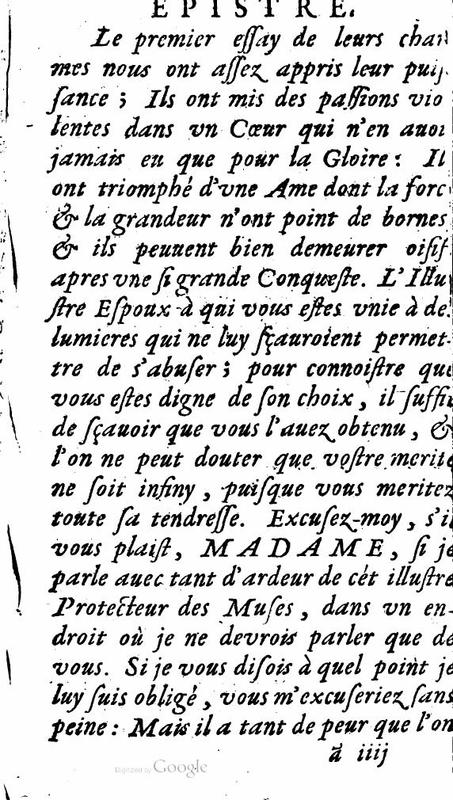 EPISTRE.
Le premier eſſay de leurs char
mes nous ont aſſez appris leur puiſ
ſance ; Ils ont mis des paſſions vio
lentes dans vn Cœur qui n'en auoi
jamais eu que pour la Gloire : Il
ont triomphé d'vne Ame dont la forc
& la grandeur n'ont point de bornes
& ils peuuent bien demeurer oiſif
apres vne ſi grande Conqueſte. L'Illu
ſtre Eſpoux à qui vous eſtes vnie à de
lumieres qui ne luy ſçauroient permet-
tre de s'abuſer ; pour connoiſtre que
vous eſtes digne de ſon choix, il ſuffi
de ſçauoir que vous l'auez obtenu, &
l'on ne peut douter que voſtre merite
ne ſoit infiny, puiſque vous meritez
toute ſa tendreſſe. Excuſez-moy, s'il
vous plaiſt, MADAME, ſi je
parle auec tant d'ardeur de cét illuſtre
Protecteur des Muſes, dans vn en-
droit où je ne devrois parler que de
vous. Si je vous diſois à quel point je
luy ſuis obligé, vous m'excuſeriez ſans
peine : Mais il a tant de peur que l'on
ã iiij
Digitized by Google